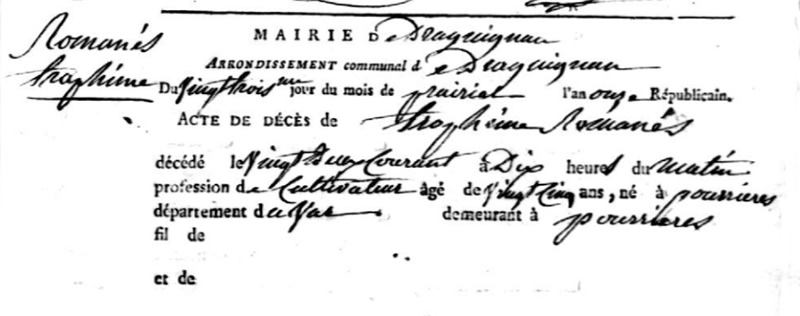 Romanés
trophime
MAIRIE De Draguignan
ARRONDISSEMENT communal de Draguignan
Du Vingt trois me jour du mois de prairial l'an onze Républicain.
ACTE DE DÉCÈS de trophime Romanés
décédé le Vingt deux Courant à Dix heures du matin
profession de Cultivateur âgé de Vingt Cinq ans, né à pourrieres
département du Var. demeurant à pourrieres
fil de
et de